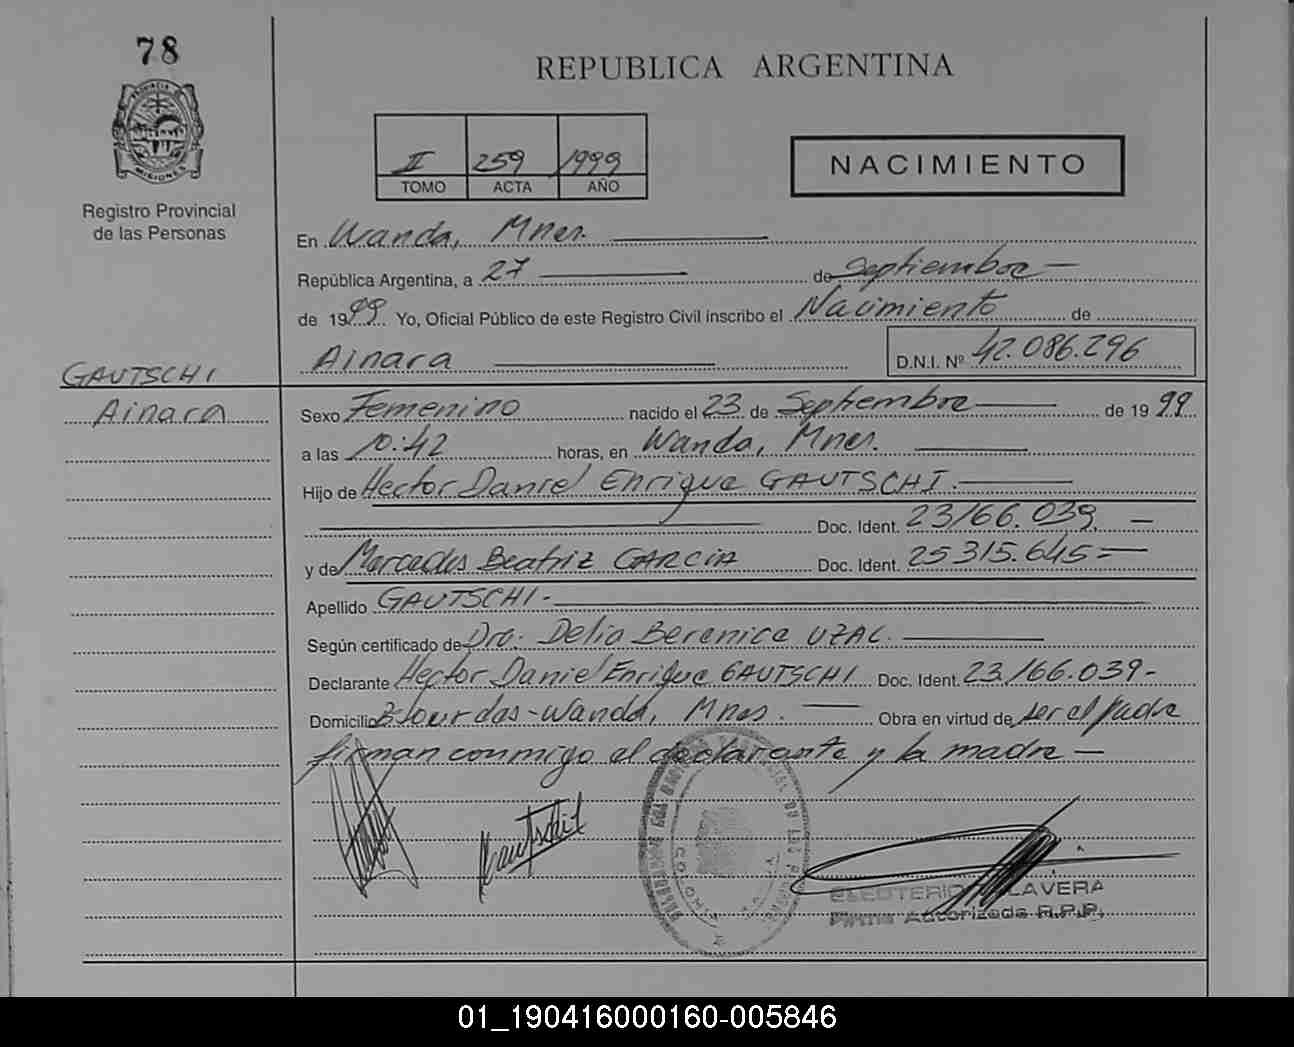 78
REPUBLICA ARGENTINA
PROVINCIA DE
MISIONES
II 259 1999
TOMO ACTA AÑO
NACIMIENTO
Registro Provincial
de las Personas
En Wanda, Mnes.
República Argentina, a 27 de Septiembre
de 1999 Yo, Oficial Público de este Registro Civil inscribo el Nacimiento de
Ainara
D.N.I. Nº 42.086.296
GAUTSCHI
Ainara
Sexo Femenino nacido el 23 de Septiembre de 1999
a las 10:42 horas, en Wanda, Mnes.
Hijo de Hector Daniel Enrique GAUTSCHI.
Doc. Ident. 23166.039
y de Mercedes Beatriz GARCIA Doc. Ident. 25315.645
Apellido GAUTSCHI.
Según certificado de Dra. Delia Berenice UZAL.
Declarante Hector Daniel Enrique GAUTSCHI Doc. Ident. 23.166.039
Domicilio Bº Lourdes-Wanda, Mnes. Obra en virtud de ser el padre
firman conmigo el declarante y la madre
Gautschi
ELEUTERIO LAVERA
Firma Autorizada R.P.P.
01_190416000160-005846